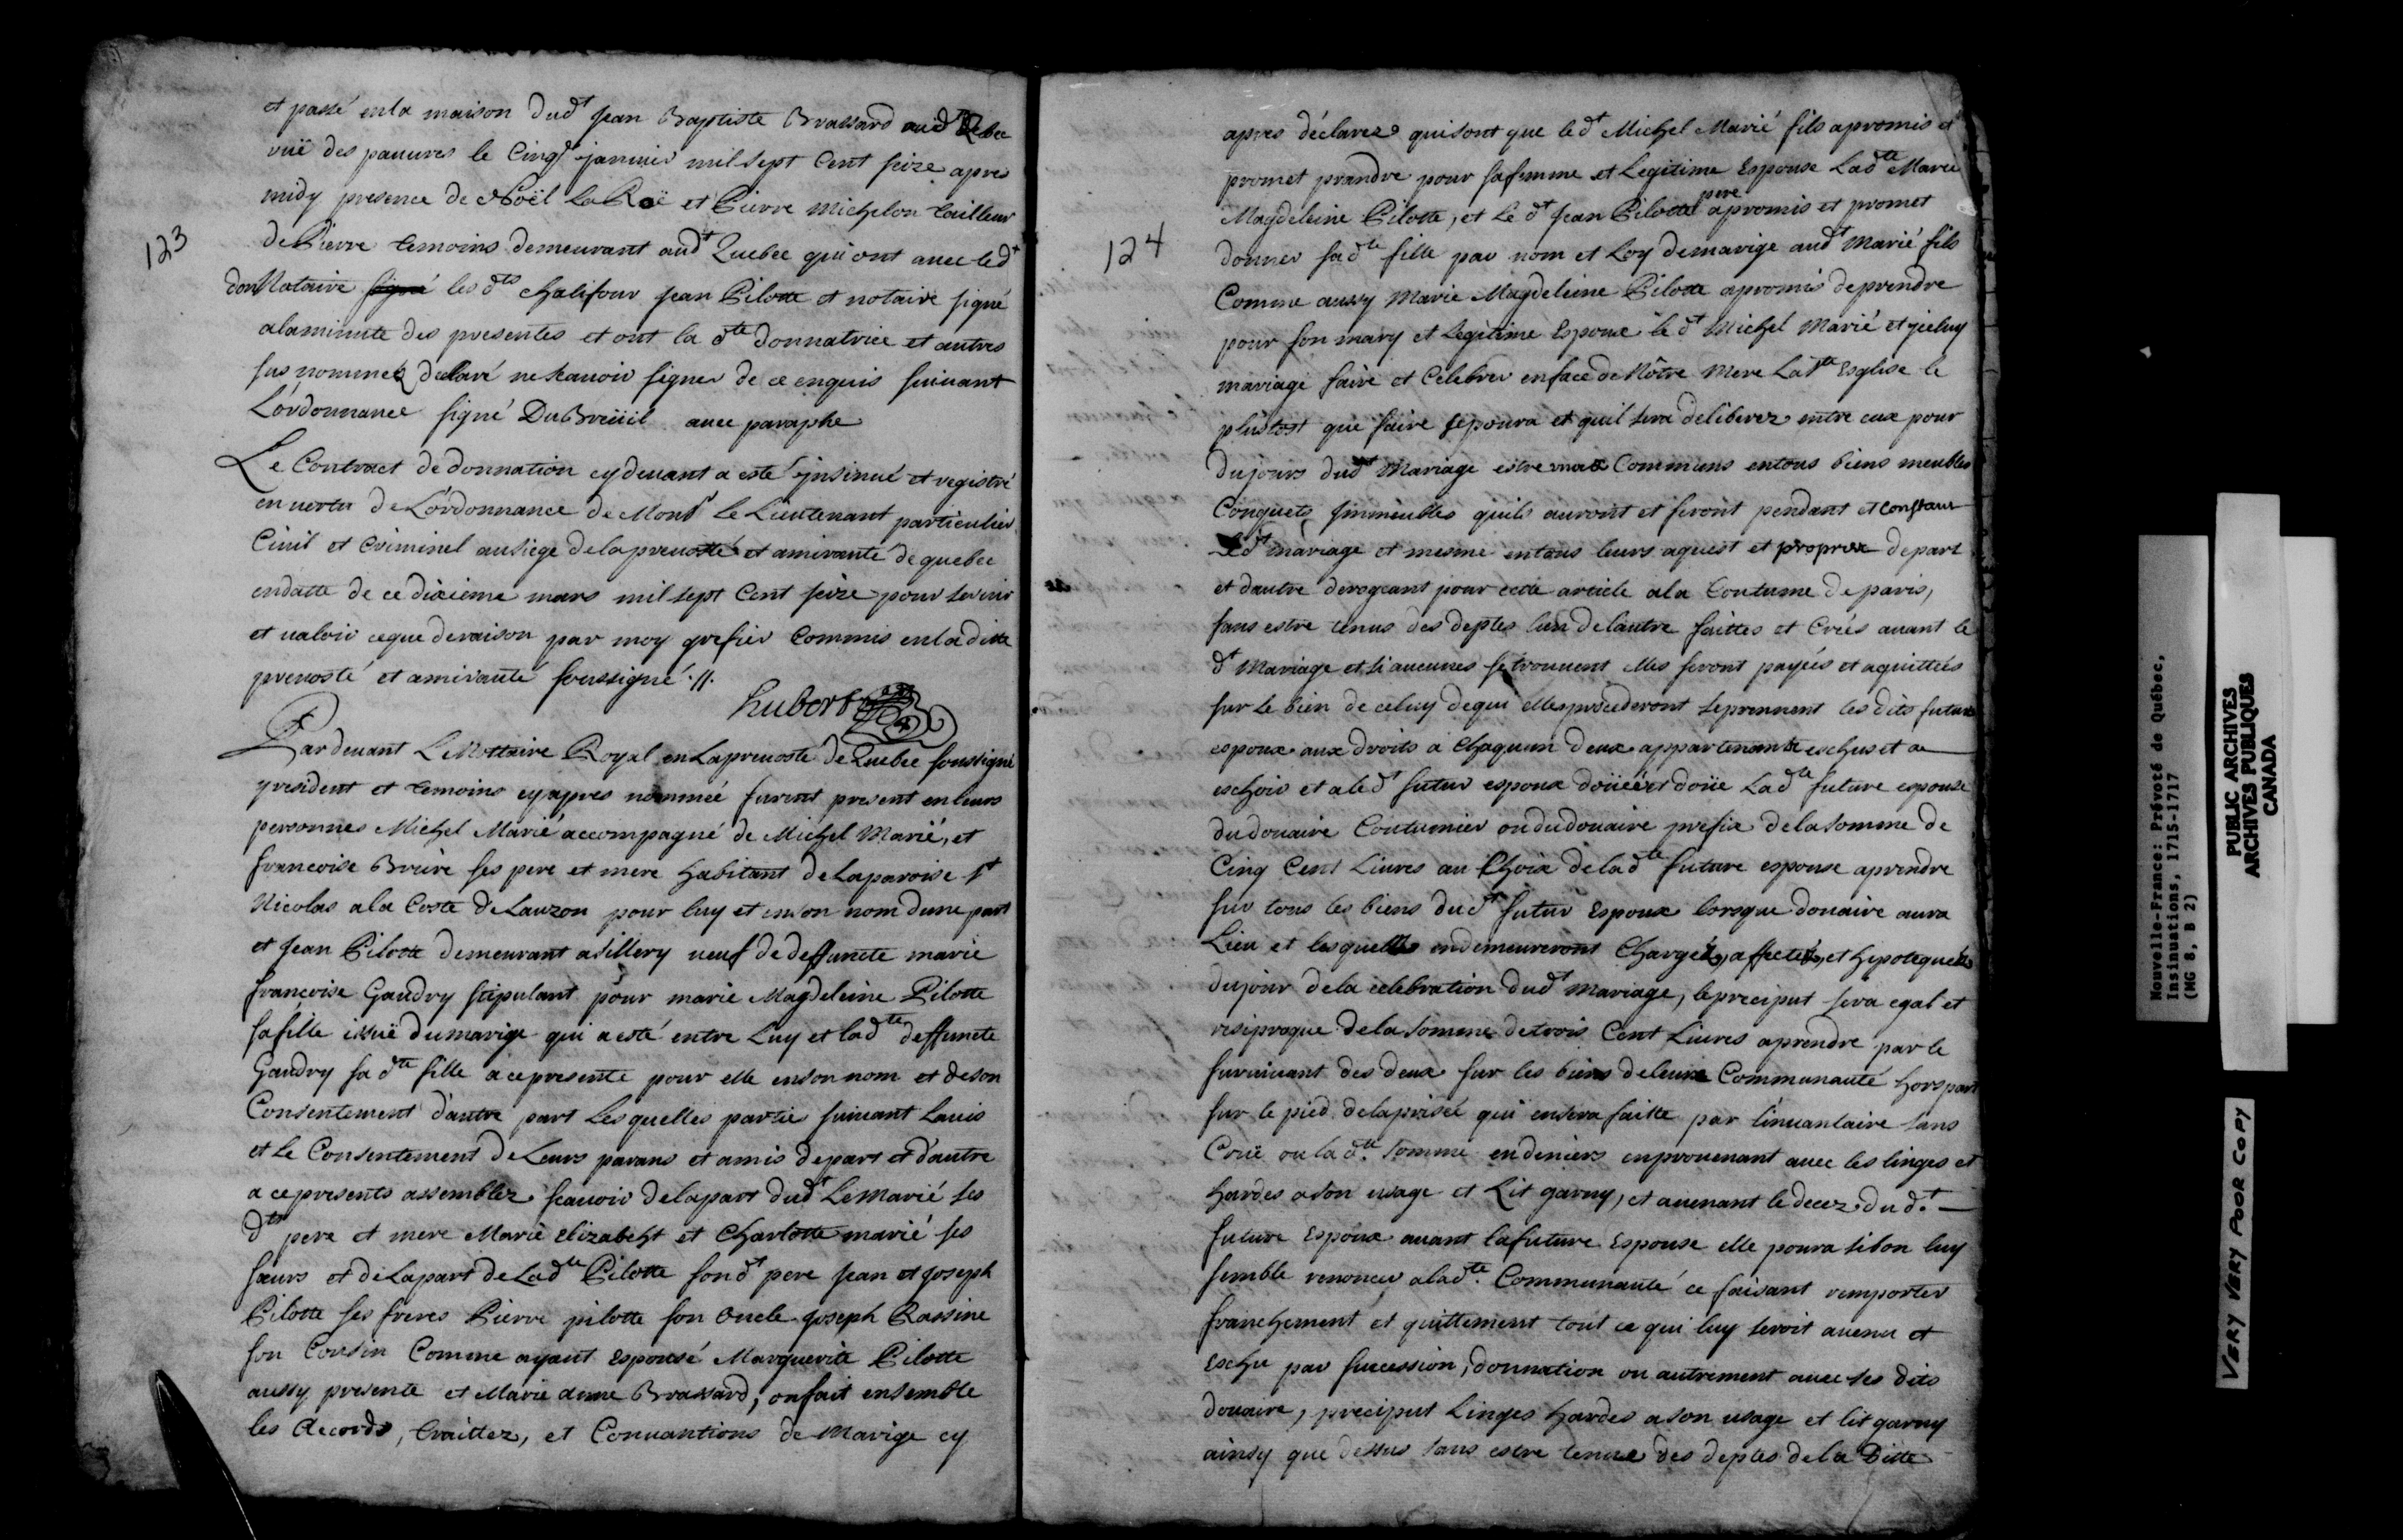 et passé en la maison dud.t Jean Baptiste Brassard aud.t Qebec
ruë des pauures le Cinq.e januier mil sept Cent seize apres
midy presence de Noël LaRoë et Pierre Michelon tailleur
123
de Pierre temoins demeurant aud.t Quebec qui ont auec led.t
don Notaire signé les d.ts Chalifour Jean Pilotte et notaire signé
alaminute des presentes et ont la d.te donnatrice et autres
sus nommez declaré ne scauoir signer de ce enquis suiuant
L'ordonnance signé DuBreüil auec paraphe
Le Contract de donnation cydeuant a esté insinué et registré
en uertu de L'ordonnance de Mons.r le Lieutenant particulier
Ciuil et Criminel au siege de la preuosté et amirauté de quebec
endatte de ce dixieme mars mil sept Cent seize pour seruir
et ualoir ceque deraison par moy grefier Commis en la ditte
preuosté et amirauté soussigné .//.
hubert
Par deuant Le Nottaire Royal en Lapreuosté de Quebec soussigné
yresident et temoins cyapres nommée furent present en leurs
personnes Michel Marié accompagné de Michel Marié, et
francoise Briere ses pere et mere habitant de Laparoise S.t
Nicolas ala Coste de Lauzon pour luy et enson nom dune part
et Jean Pilotte demeurant asillery ueuf de deffuncte marie
françoise Gaudry stipulant pour marie Magdeleine Pilotte
sa fille issuë dumarige qui a esté entre Luy et lad.te deffuncte
Gaudry sad.te fille acepresente pour elle ensonnom et deson
Consentement d'autre part Lesquelles partie suiuant Lauis
et le Consentement de Leurs parans et amis depart et d'autre
a cepresents assemblez scauoir delapart dud.t Le Marié ses
d.ts pere et mere Marie Elizabeht et Charlotte marié ses
sœurs et deLapart de Lad.te Pilotte sond.t pere Jean et Joseph
Pilotte ses freres Pierre pilotte son oncle Joseph Rassine
son Cousin Comme ayant Espousé Marguerite Pilotte
aussy presente et Marie anne Brassard, onfait ensemble
les Accords, traittez, et Conuantions de Marige cy
apres déclarez quisont que led.t Michel Marié fils apromis et
promet prandre pour safemme et Legitime Espouse Lad.te Marie
Magdeleine Pilotte, et Le d.t Jean Pilotte pere apromis et promet
124
donner sad.te fille par nom et Loy demarige aud.t Marié fils
Comme aussy Marie Magdeleine Pilotte apromis deprendre
pour son mary et Legitime Espoux le d.t Michel Marié et jceluy
mariage faire et Celebrer enface de Nôtre Mere La S.te Esglise le
plustost que faire sepoura et quil sera deliberez entre eux pour
dujours dud.t Mariage estre Communs entous biens meubles
Conquets jmmeubles quils auront et feront pendant et constant
led.t mariage et mesme entous leurs aquest et propres depart
et dautre derogeant pour cette article ala Coutume deparis,
sans estre tenus des deptes lun delautre faittes et Créés auant le
d.t Mariage et si aucunes setrouuent elles seront payéés et aquittéés
sur le bien de celuy dequi elles procederont seprennent les dits futurs
espoux aux droits a Chaquun deux appartenants eschus et a
eschoir et aled.t futur espoux doüéé et doüe Lad.te future espouse
dudouaire Coutumier ou dudouaire prefix dela somme de
Cinq Cent Liures au Choix de lad.te future espouse aprendre
sur tous les biens dud.t futur Espoux lorsque douaire aura
Lieu et lesquelles endemeureront Chargés, affectés, et hipotequés
dujour dela celebration dud.t Mariage, le preciput sera egal et
resiproque dela somme detrois Cent Liures aprendre par le
suruiuant des deux sur les biens deleur Communauté horspart
sur le pied delaprisée qui ensera faitte par linuantaire sans
Crüe ou la d.te somme endeniers enprouenant auec les linges et
hardes ason usage et Lit garny, et auenant le decez du d.t
future Espoux auant lafuture Espouse elle poura sibon luy
semble renoncer alad.te Communauté ce faisant remporter
franchement et quittement tout ce qui luy seroit auenu et
Eschu par sucession, donnation ou autrement auec ses dits
douaire, preciput Linges hardes ason usage et lit garny
ainsy que dessus sans estre tenue des deptes de la Ditte
Nouvelle-France: Prévoté de Québec,
Insinuations, 1715-1717
(MG 8, B 2)
PUBLIC ARCHIVES
ARCHIVES PUBLIQUES
CANADA
VERY VERY POOR COPY